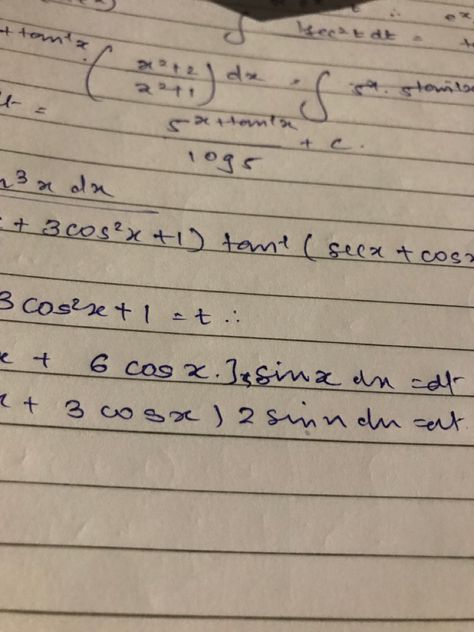 ∫ sec²t dt =
+tan⁻¹x (x²+2 / x²+1) dx = ∫ 5ˣ. 5tan⁻¹x
= 5^(x+tan⁻¹x) / log5 + c.
n³x dx
+ 3cos²x+1) tan⁻¹ (secx + cosx
3cos²x+1 = t ∴
x + 6 cosx. ] sinx dx = dt
x + 3 cosx ) 2 sinx dx = dt.